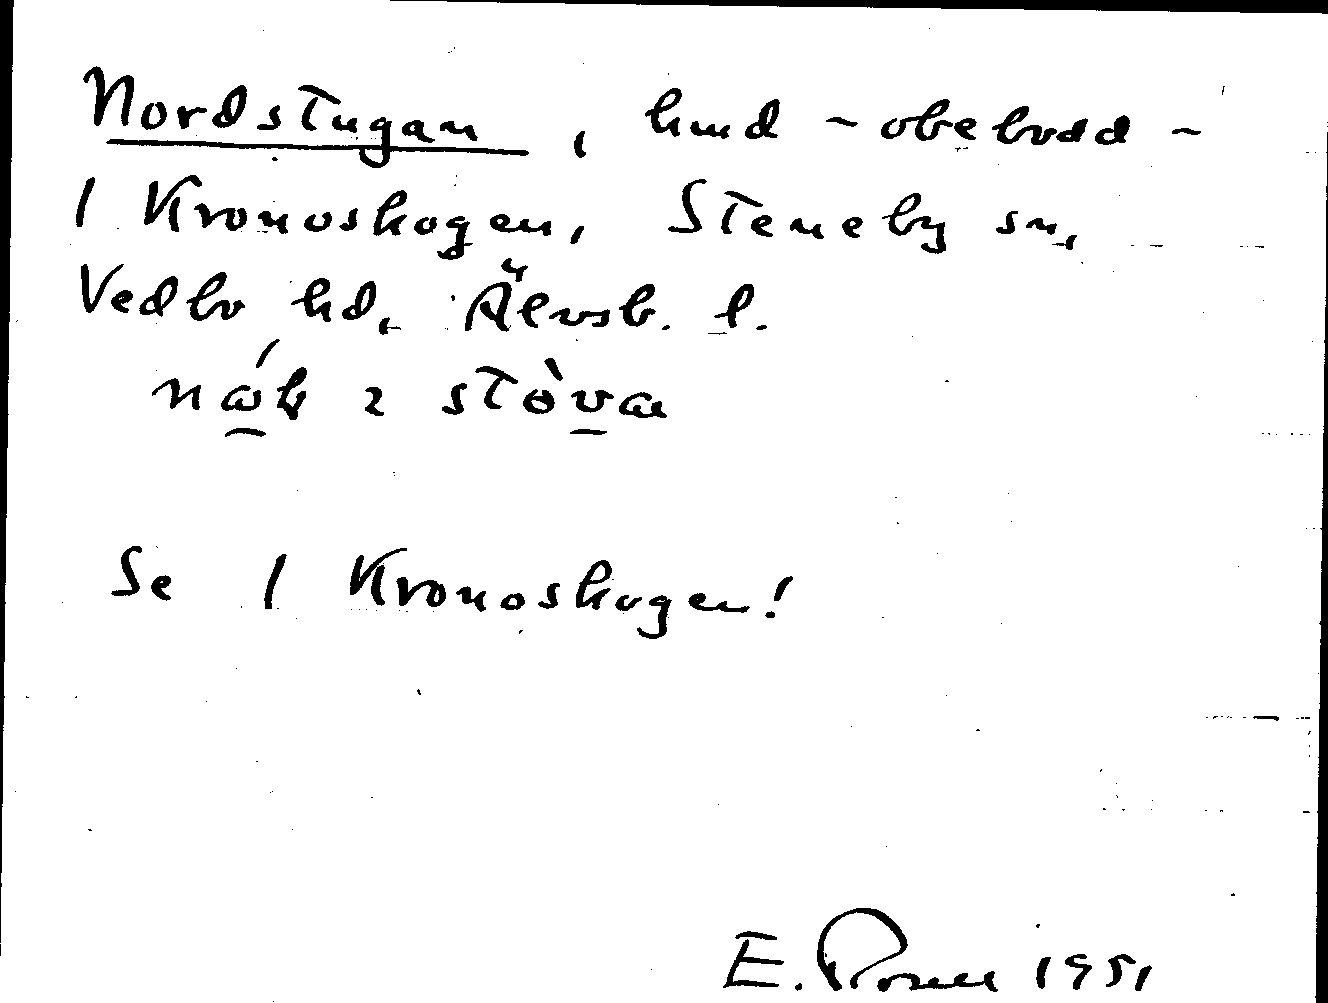 Nordstugan, hmd - obebodd -
/ Kronoskogen, Steneby sn,
Vedbo hd, Älvsb. l.
Se / Kronoskogen!
E. 1951